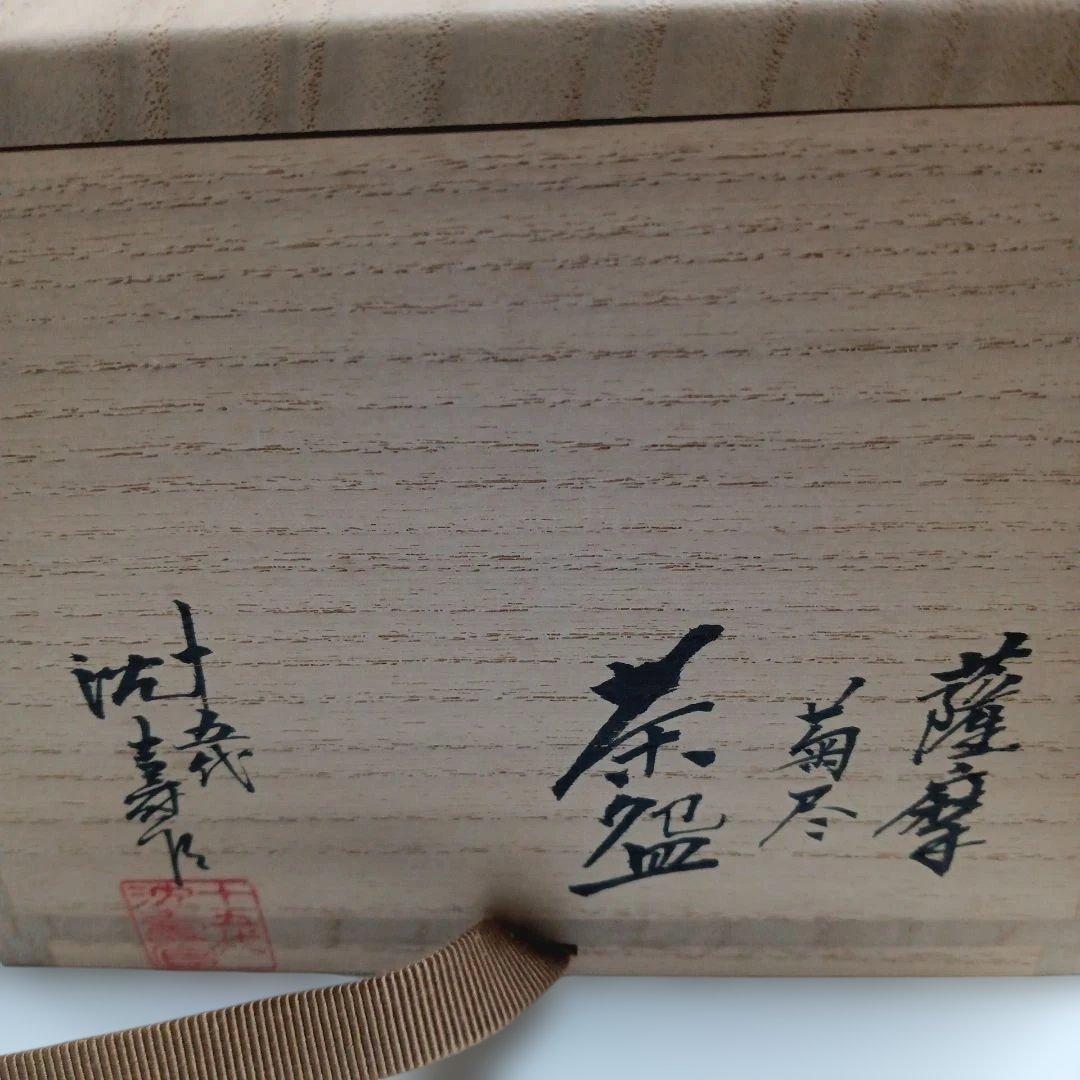 薩摩
菊尽
茶盌
十五代
沈壽官